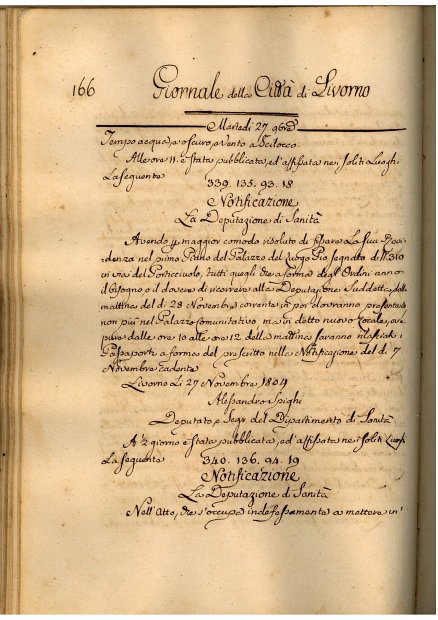 166 Giornale della Città di Livorno
Martedi 27. 9bre
Tempo acqua, e oscuro, e Vento a Scilocco.
Alle ore 11. è stata pubblicata, ed affissata nei soliti Luoghi
La seguente 339. 135. 93. 18
Notificazione
La Deputazione di Sanità
Avendo p maggior comodo risoluto di fissare La sua Resi
denza nel primo Piano del Palazzo del Luogo Pio segnato di N. 310
in via del Porticciuolo, tutti quegli che a forma degli Ordini anno
il bisogno o il dovere di ricorrere alla Deputazione Suddetta, dalla
mattina del di 28 Novembre corrente in poi dovranno presentarsi
non più nel Palazzo Comunitativo, ma in detto nuovo Locale, ove
pure dalle ore 10 alle ore 12 della mattina saranno rilasciati i
Passaporti a forma del prescritto nella Notificazione del d. 7
Novembre cadente
Livorno Li 27 Novembre 1804
Alessandro Spighi
Deputato e Segr. del Dipartimento di Sanità
A 2 giorno è stata pubblicata, ed affissata nei soliti Luoghi
La seguente 340. 136. 94. 19
Notificazione
La Deputazione di Sanità
Nell'Atto, che s'occupa indefessamente a mettere in